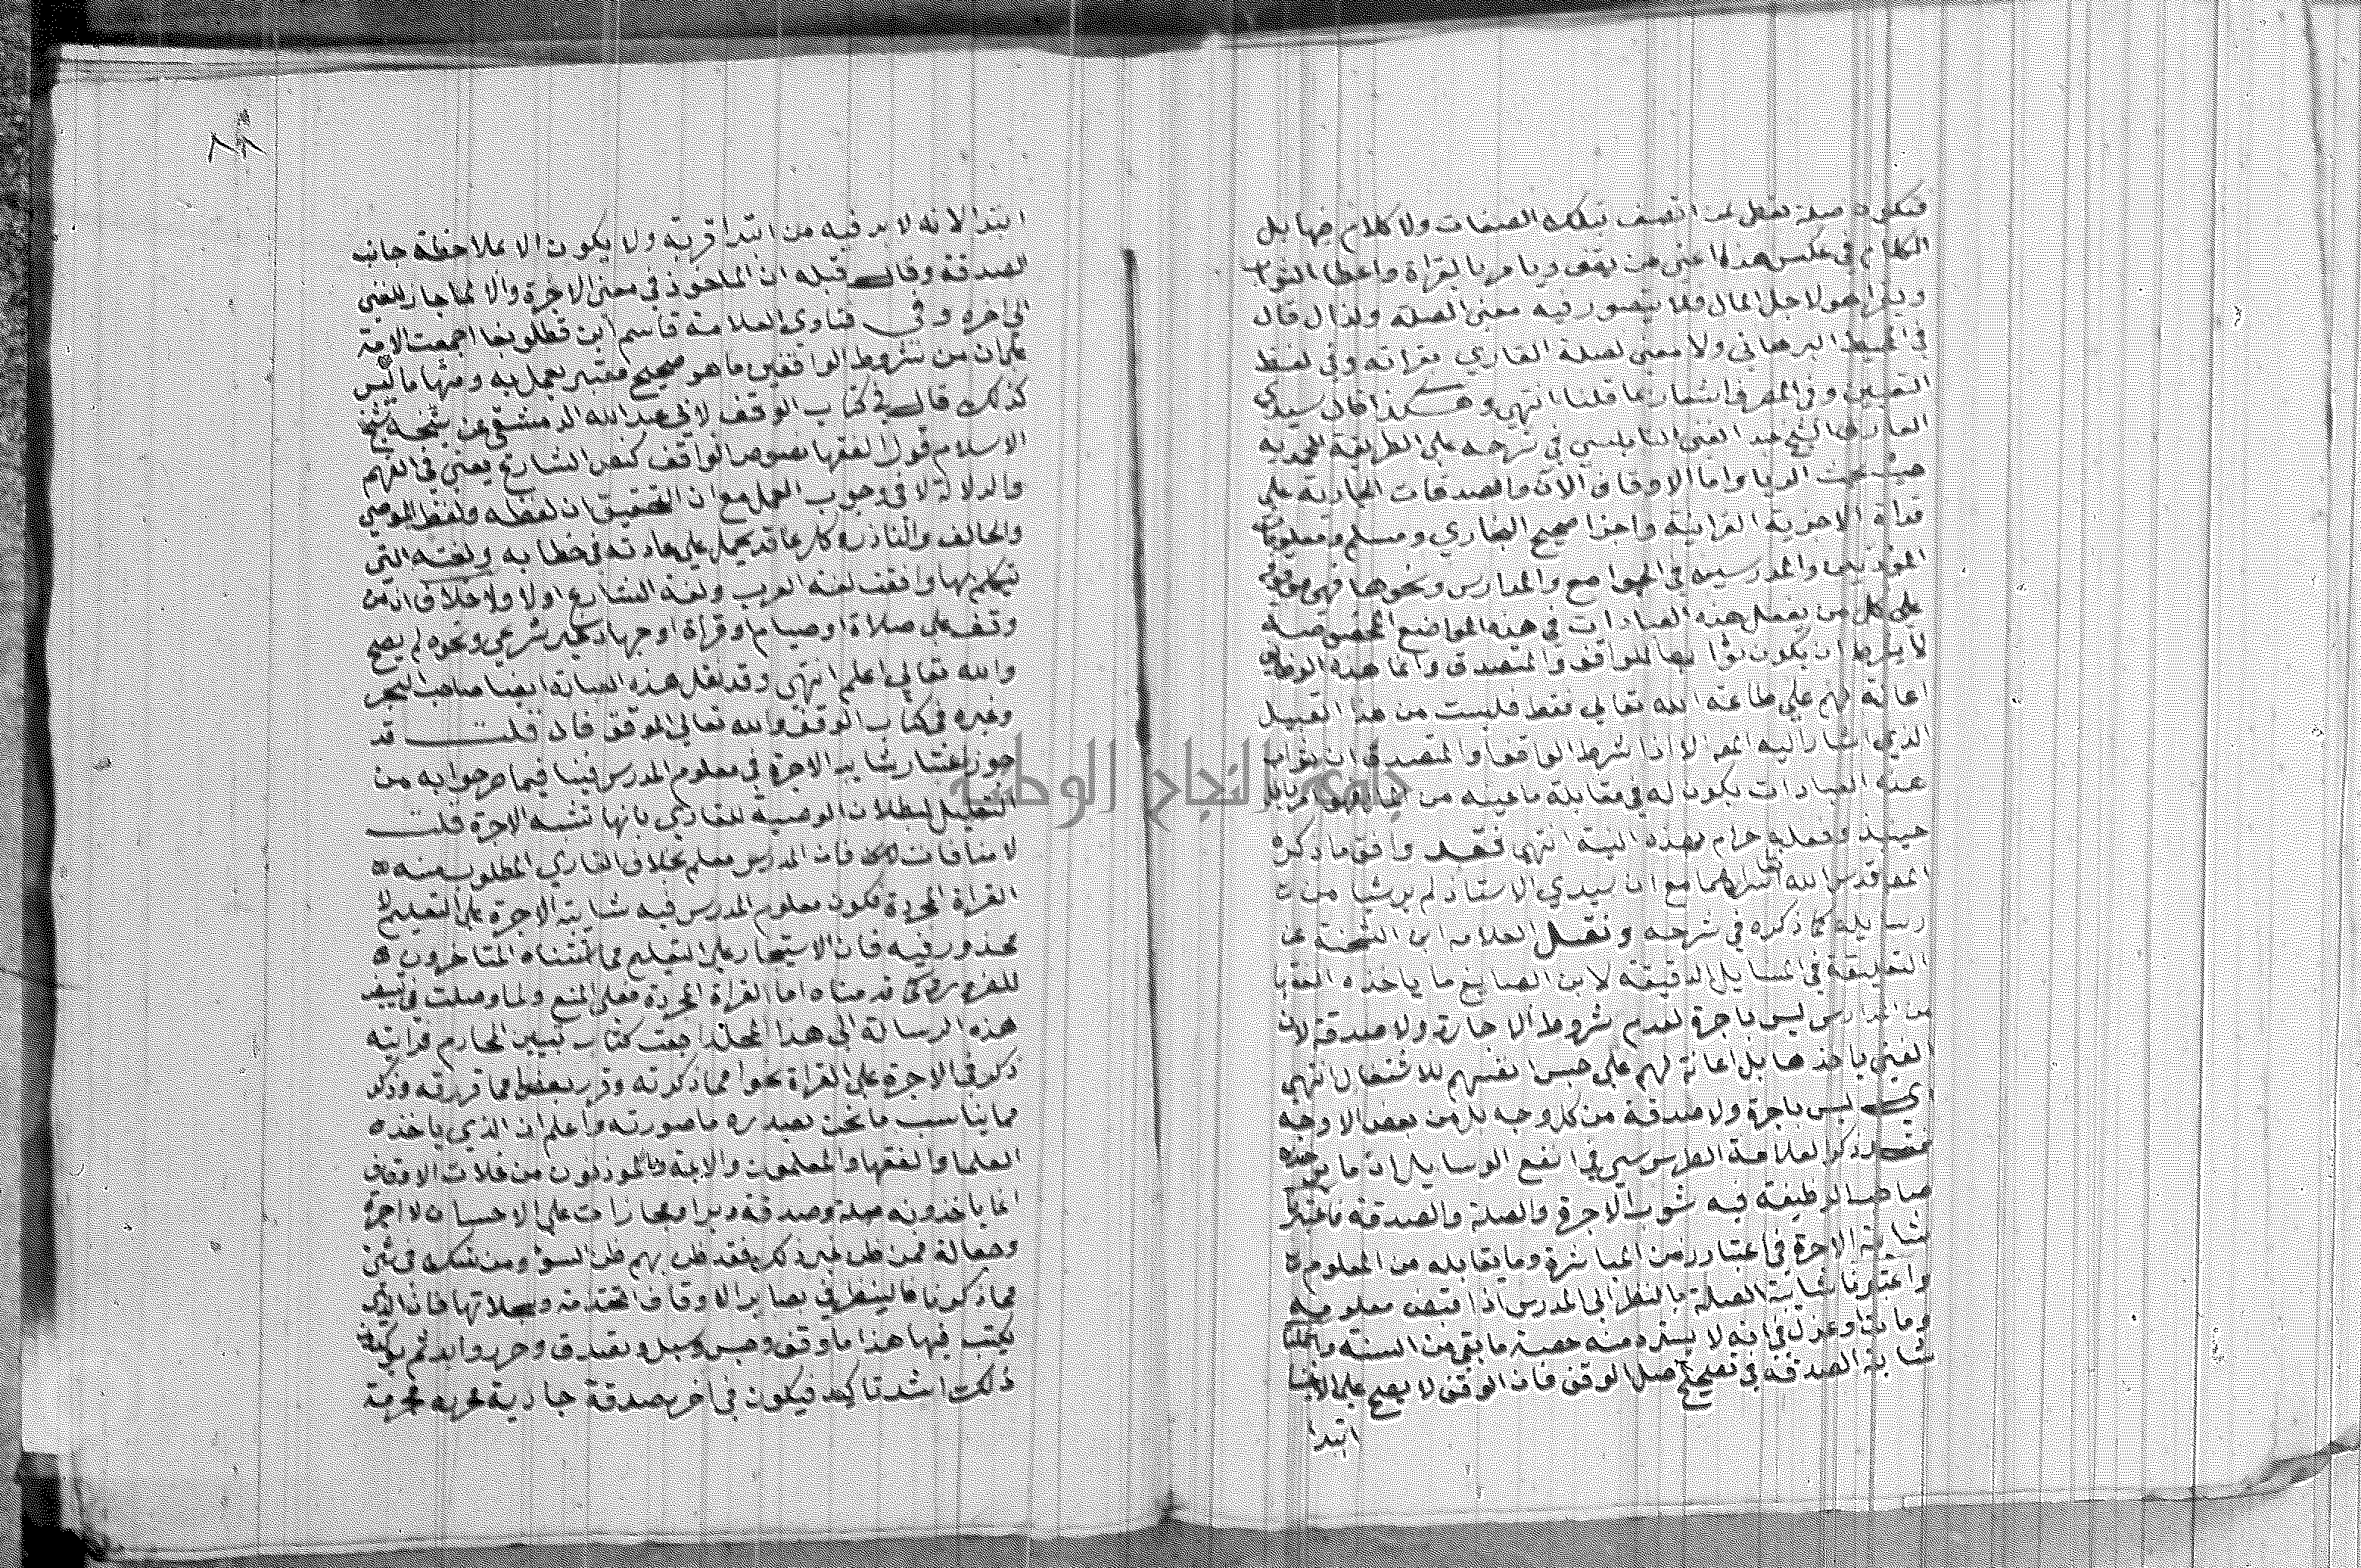 فتكون صلة لمن اتصف بتلك الصفات ولا كلام فيها بل
الكلام في عكس هذا اعني من يقف ويامر بالقراة واعطا الثواب
ويقرا هو لاجل المال فلا يتصور فيه معنى الصلة ولذا قال
في المحيط البرهاني ولا معنى لصلة القاري بقراته وفي لفظ
التعيين وفي المصرف اشعار بما قلنا انتهى وهكذا قال سيدي
العارف الشيخ عبد الغني النابلسي في شرحه على الطريقة المحمدية
حيث بحث الريا واما الاوقاف الآن والصدقات الجارية على
قراة الاجزية القرانية واجزا صحيح البخاري ومسلم ومعلومات
الموذنين والمدرسين في الجوامع والمدارس ونحوها فهي موقوفة
على كل من يفعل هذه العبادات في هذه المواضع المخصوصة
لا بشرط ان يكون ثوابها للواقف والمتصدق وانما هذه الوظايف
اعانة لهم على طاعة الله تعالى فقط فليست من هذا القبيل
الذي اشار اليه المص الا اذا شرط الواقف او المتصدق ان ثواب
هذه العبادات يكون له في مقابلة ما عينه من المال فهو حرام
حينيذ وفعله حرام بهذه النية انتهى فقد وافق ما ذكره
المص قدس الله تعالى اسرارهما مع ان سيدي الاستاذ لم ير شيا من
رسايله كما ذكره في شرحه ونقل العلامه ابن الشحنة عن
التعليقة في المسايل الدقيقة لابن الصايغ ما ياخذه الفقها
من المدارس ليس باجرة لعدم شروط الاجارة ولا صدقة لان
الغني ياخذها بل اعانة لهم على حبس انفسهم للاشتغال انتهى
اي ليس باجرة ولا صدقة من كل وجه بل من بعض الاوجه
فقد ذكر العلامة الطرسوسي في انفع الوسايل ان ما ياخذه
صاحب الوظيفة فيه شوب الاجرة والصلة والصدقة فاعتبرنا
شايبة الاجرة في اعتبار زمن المباشرة وما يقابله من المعلوم
واعتبرنا شايبة الصلة بالنظر الى المدرس اذا قبض معلومه
ومات او عزل في انه لا يسترد منه حصة ما بقي من السنة واعملنا
شايبة الصدقة في تصحيح اصل الوقف فان الوقف لا يصح على الاغنيا
ابتدا
٨٨
ابتدا لانه لا بد فيه من ابتدا قربة ولا يكون الا بملاحظة جانب
الصدقة وقال قبله ان الماخوذ في معنى الاجرة والا لما جاز للغني
الى اخره وفي فتاوي العلامة قاسم ابن قطلوبغا اجمعت الامة
على ان من شروط الواقفين ما هو صحيح معتبر يعمل به ومنها ما ليس
كذلك قال في كتاب الوقف لابي عبد الله الدمشقي عن شيخه شيخ
الاسلام قول الفقها نصوص الواقف كنص الشارع يعني في الفهم
والدلالة لا في وجوب العمل مع ان التحقيق ان لفظه ولفظ الموصي
والحالف والناذر وكل عاقد يحمل على عادته في خطابه ولغته التي
يتكلم بها وافقت لغة العرب ولغة الشارع اولا ولا خلاف ان من
وقف على صلاة او صيام او قراة او جهاد غير شرعي ونحوه لم يصح
والله تعالى اعلم انتهى وقد نقل هذه العبارة ايضا صاحب البحر
وغيره في كتاب الوقف والله تعالى الموفق فان قلت قد
جوز اعتبار شايبة الاجرة في معلوم المدرس فينافي ما صرحوا به من
التعليل لبطلان الوصية للقاري بانها تشبه الاجرة قلت
لا منافات فان المدرس معلم بخلاف القاري المطلوب منه
القراة المجردة فكون معلوم المدرس فيه شايبة الاجرة على التعليم لا
محذور فيه فان الاستيجار على التعليم مما استثناه المتاخرون
للضرورة كما قدمناه اما القراة المجردة فعلى المنع ولما وصلت في تبييض
هذه الرسالة الى هذا المحل راجعت كتاب تبيين المحارم فرايته
ذكر في الاجرة على القراة نحوا مما ذكرته وقرر بعضا مما قررته وذكر
مما يناسب ما نحن بصدده ما صورته واعلم ان الذي ياخذه
العلما والفقها والمعلمون والايمة والموذنون من غلات الاوقاف
انما ياخذونه صلة وصدقة وبرا ومجازات على الاحسان لا اجرة
وجعالة فمن ظن غير ذلك فقد ظن بهم ظن السوء ومن شك في شي
مما ذكرنا فالينظر في بصاير الاوقاف المتقدمة وسجلاتها فان الذي
يكتب فيها هذا ما وقف وحبس وسبل وتصدق وحرر وابد ثم يوكدون
ذلك اشد تاكيد فيكون في اخره صدقة جارية محرمه محرمة
جامعة النجاح الوطنية